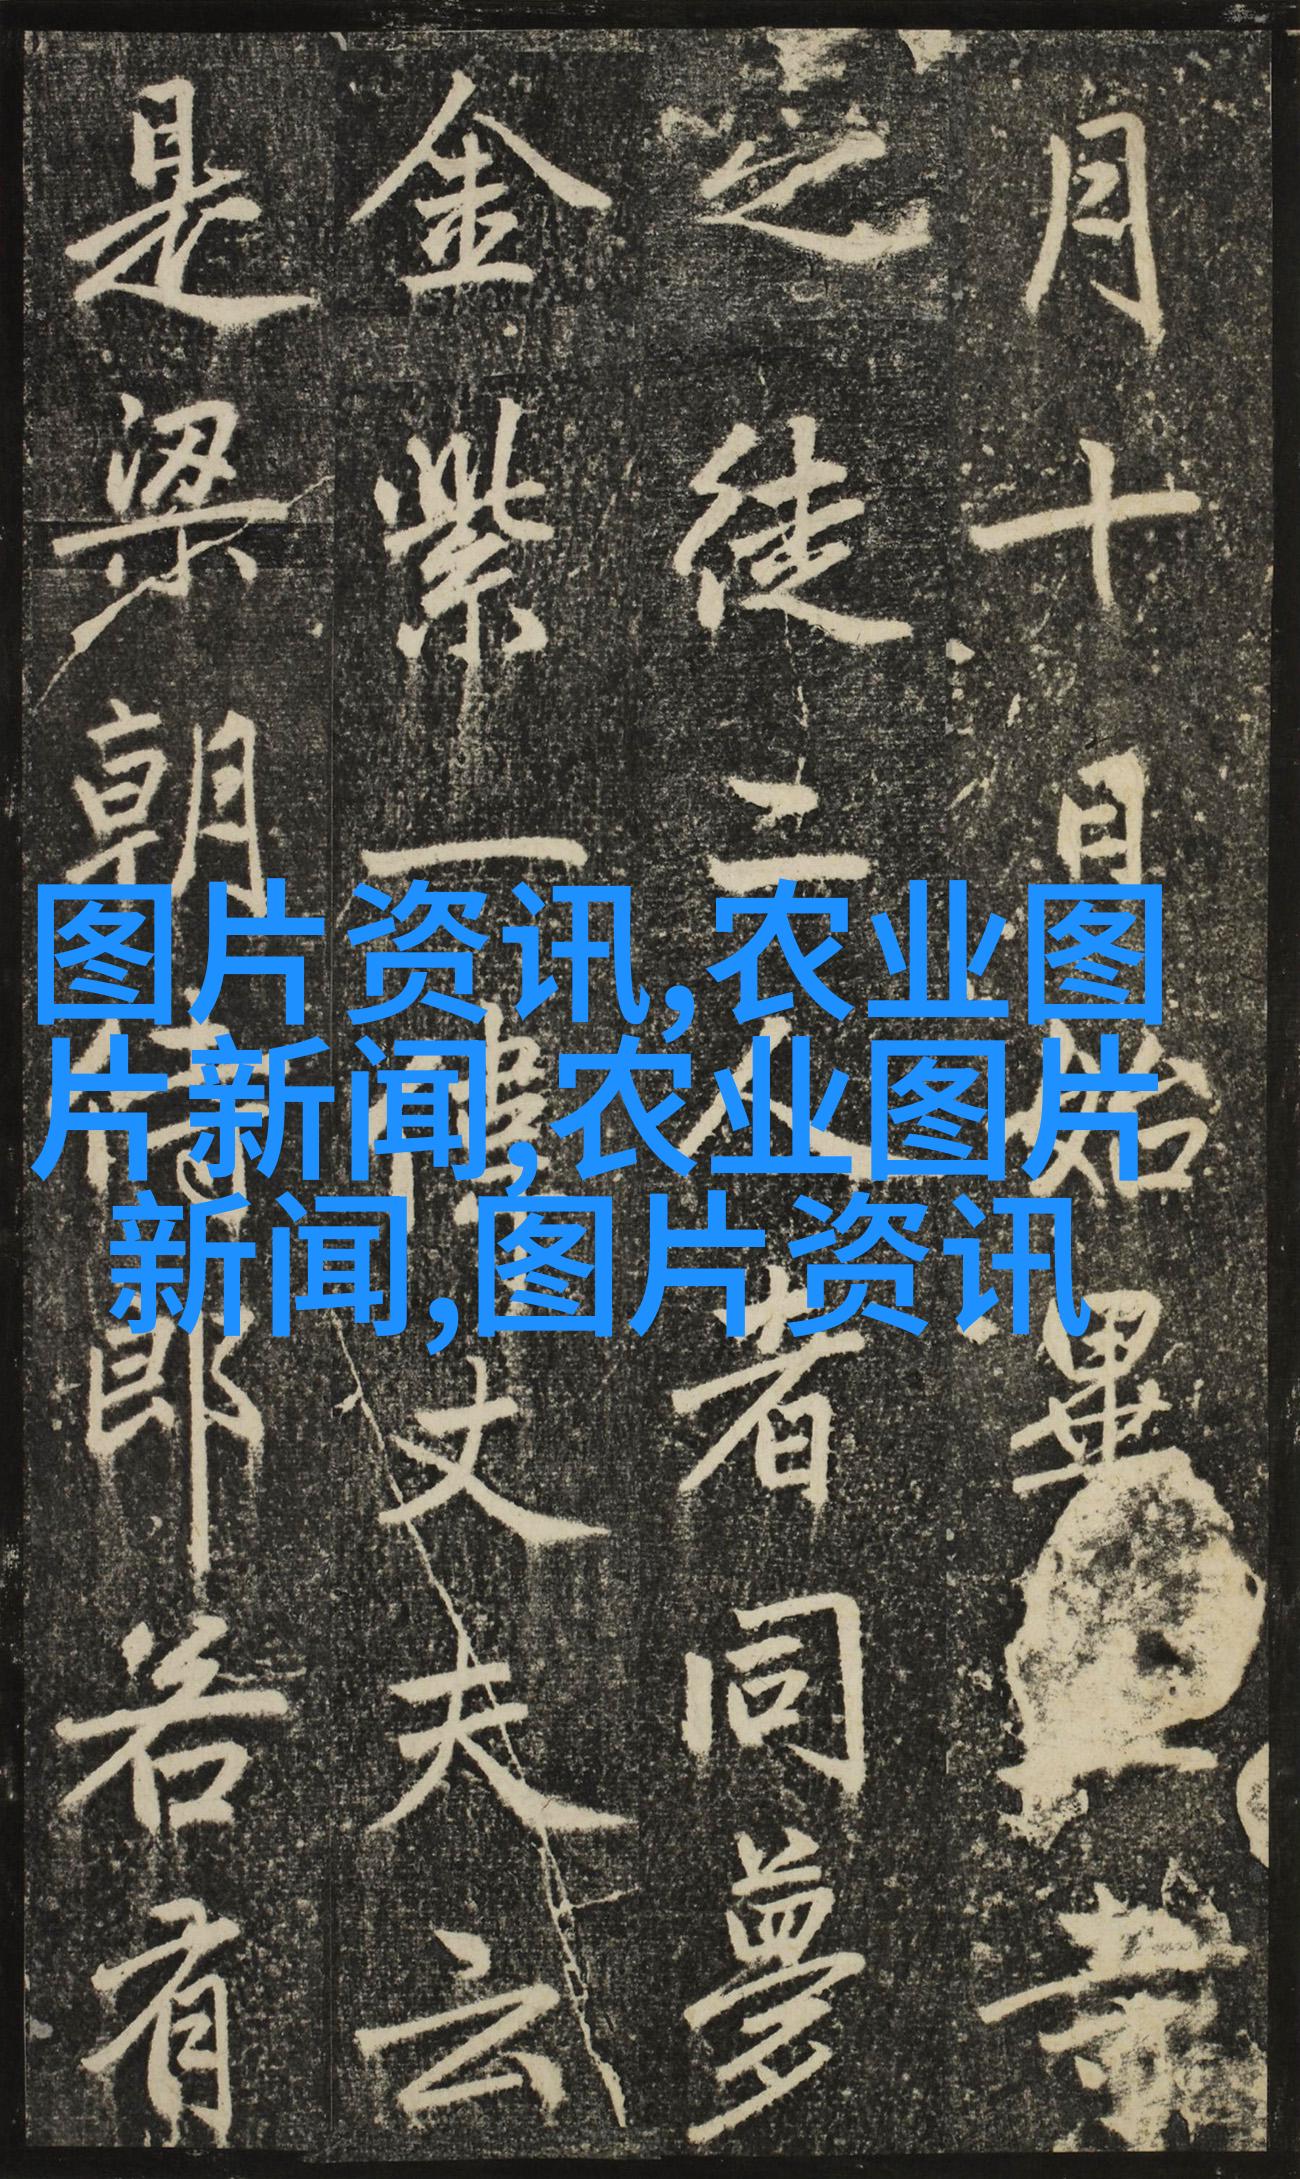 月十日始畢
之徒二人者同夢
金紫一 丈夫云
是梁朝侍郎若有
图片资讯,农业图
片新闻,农业图片
新闻,图片资讯